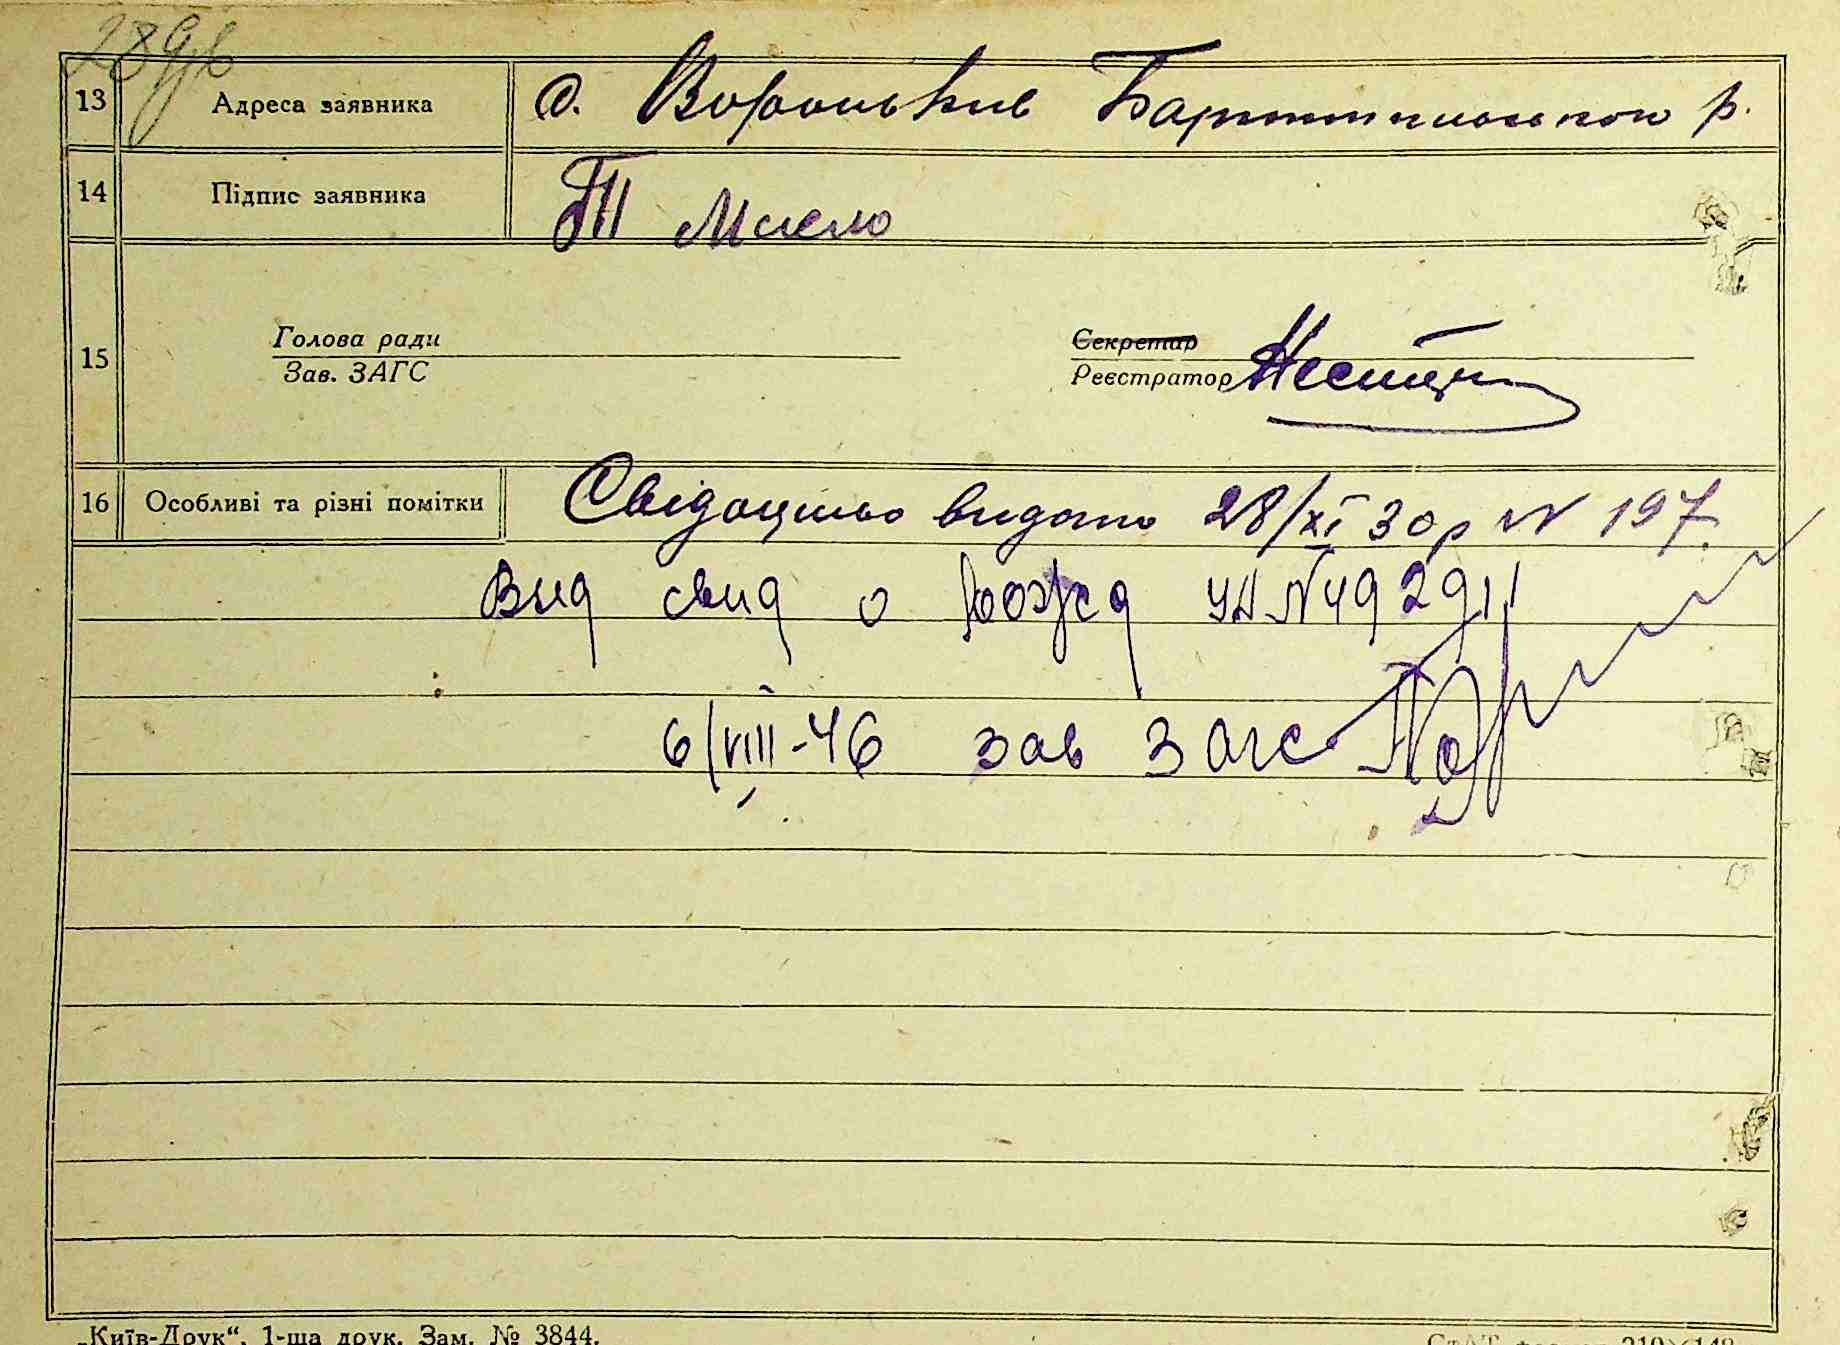 289
13 Адреса заявника с. Вороньків Баришпільського р.
14 Підпис заявника Мисло
15 Голова ради Секретар
Зав. ЗАГС Реєстратор
16 Особливі та різні помітки Свідоцтво видано 28/XI 30 р N 197.
Выд свид о рожд УА N 492911
6/VIII-46 зав Загс
„Київ-Друк“. 1-ша друк. Зам. № 3844.